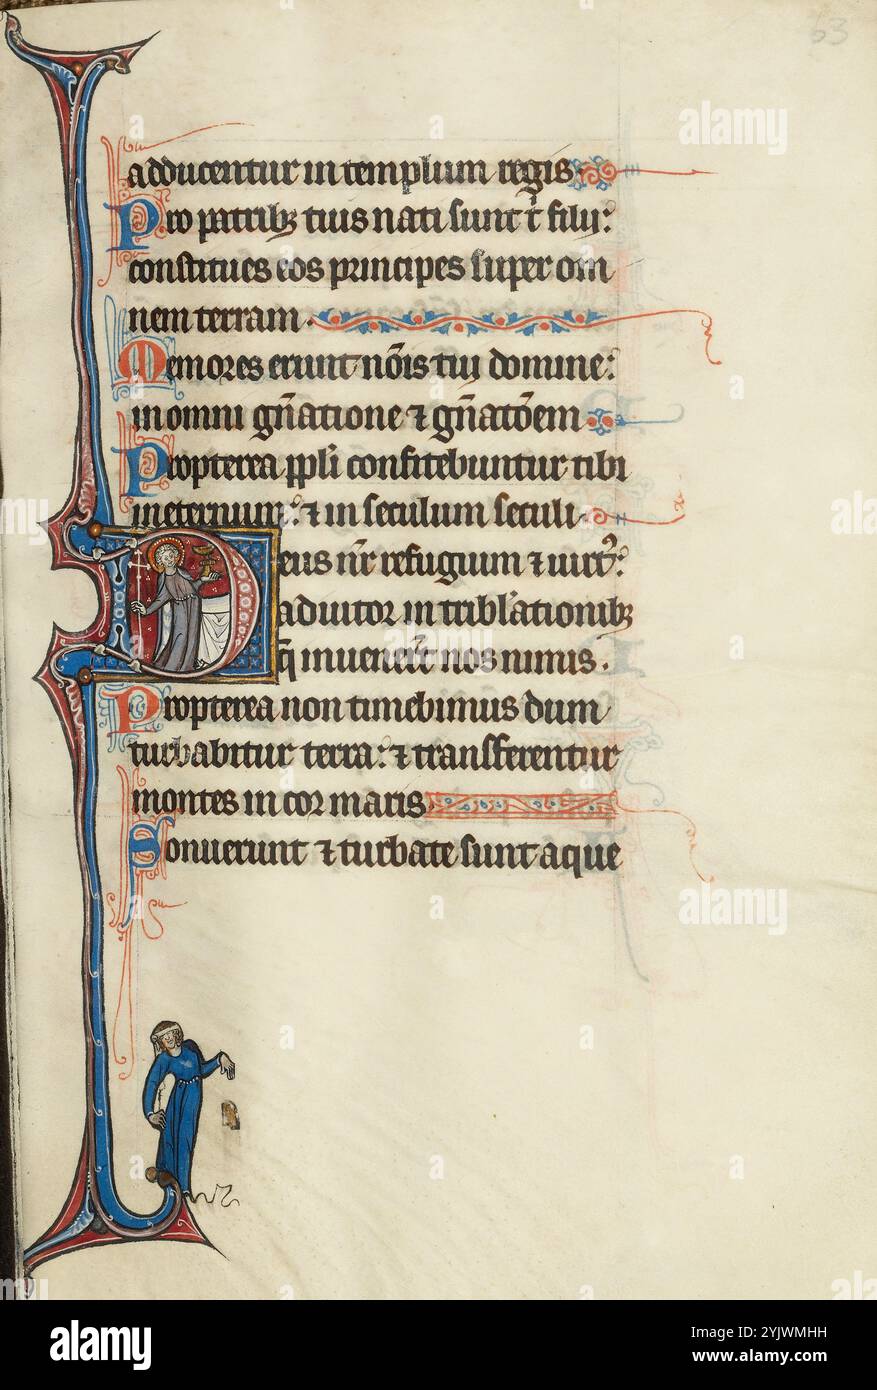 63
adducentur in templum regis.
Pro patribꝫ tuis nati sunt t̄ filii:
constitues eos principes super om
nem terram.
Memores erunt nōīs tui domine:
in omni gn̄atione ⁊ gn̄atōem
Propterea ppl̄i confitebuntur tibi
in eternum: ⁊ in seculum seculi.
Deus nr̄ refugium ⁊ uirtꝰ:
adiutor in tribl̓ationibꝫ
q̄ inuenerūt nos nimis.
Propterea non timebimus dum
turbabitur terra: ⁊ transferentur
montes in cor maris
Sonuerunt ⁊ turbate sunt aque
alamy
Image ID: 2YJWMHH
www.alamy.com